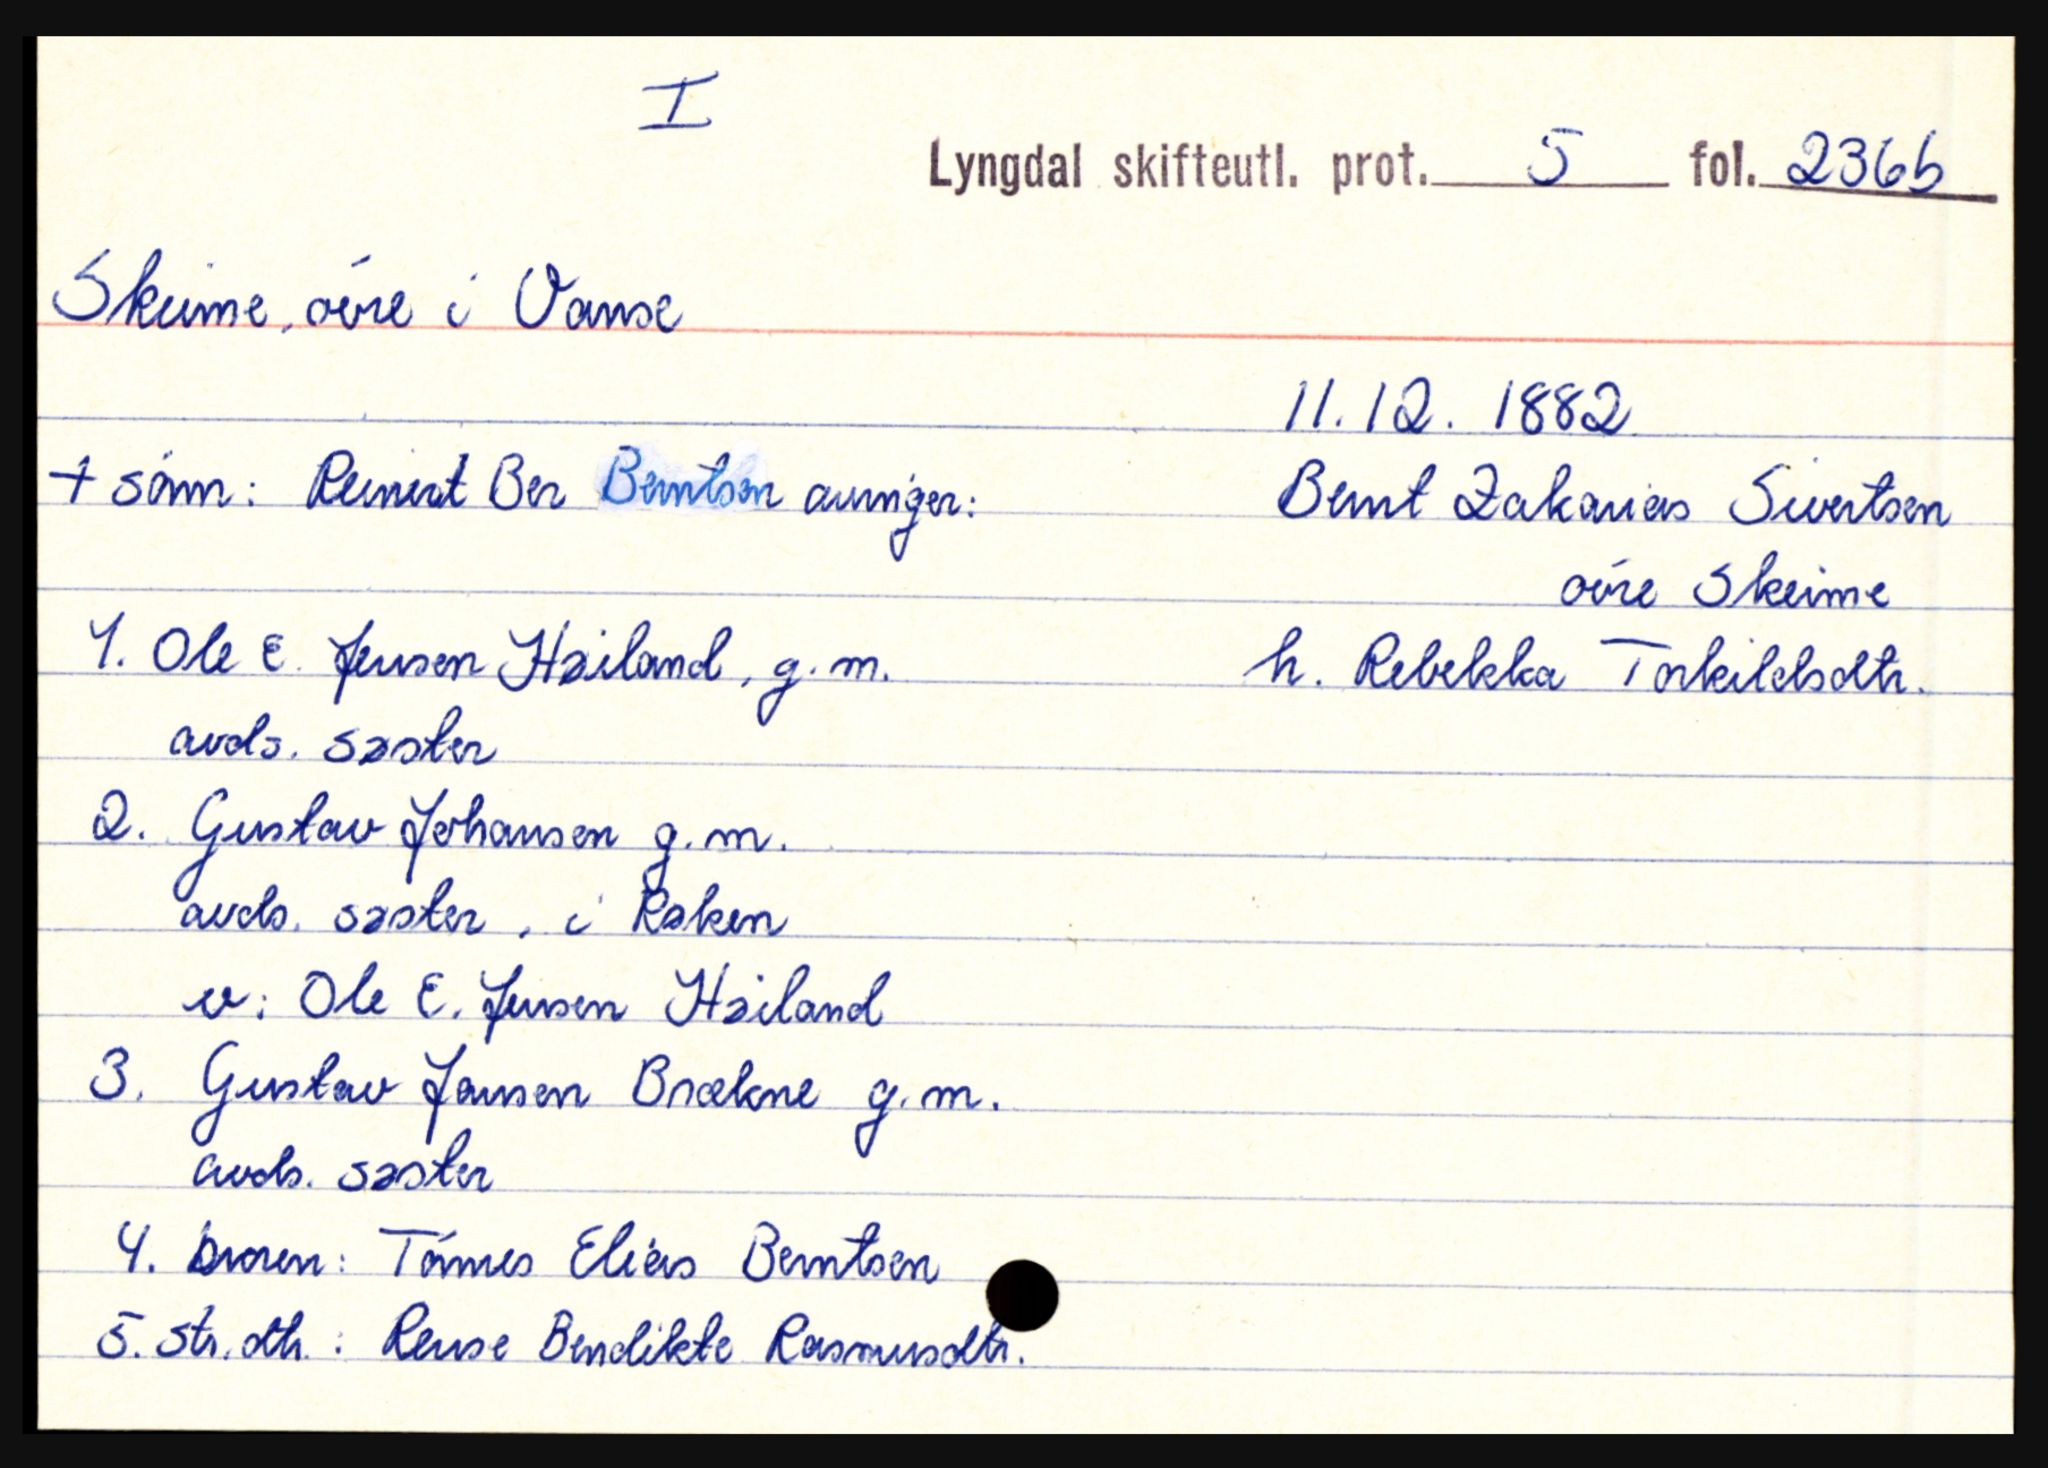 I
Lyngdal skifteutl. prot. 5 fol. 236b
Skeime, øvre i Vanse
11.12. 1882
+ sønn: Reinert Ber Berntsen arvinger:
Bernt Zakarias Sivertsen
øvre Skeime
1. Ole E. Jensen Høiland, g.m.
h. Rebekka Torkildsdtr.
avds. søster
2. Gustav Johansen g.m.
avds. søster, i Røken
v: Ole E. Jensen Høiland
3. Gustav Jansen Brækne g.m.
avds. søster
4. broren: Tønnes Elias Berntsen
5. str.dtr.: Rense Bendikte Rasmusdtr.